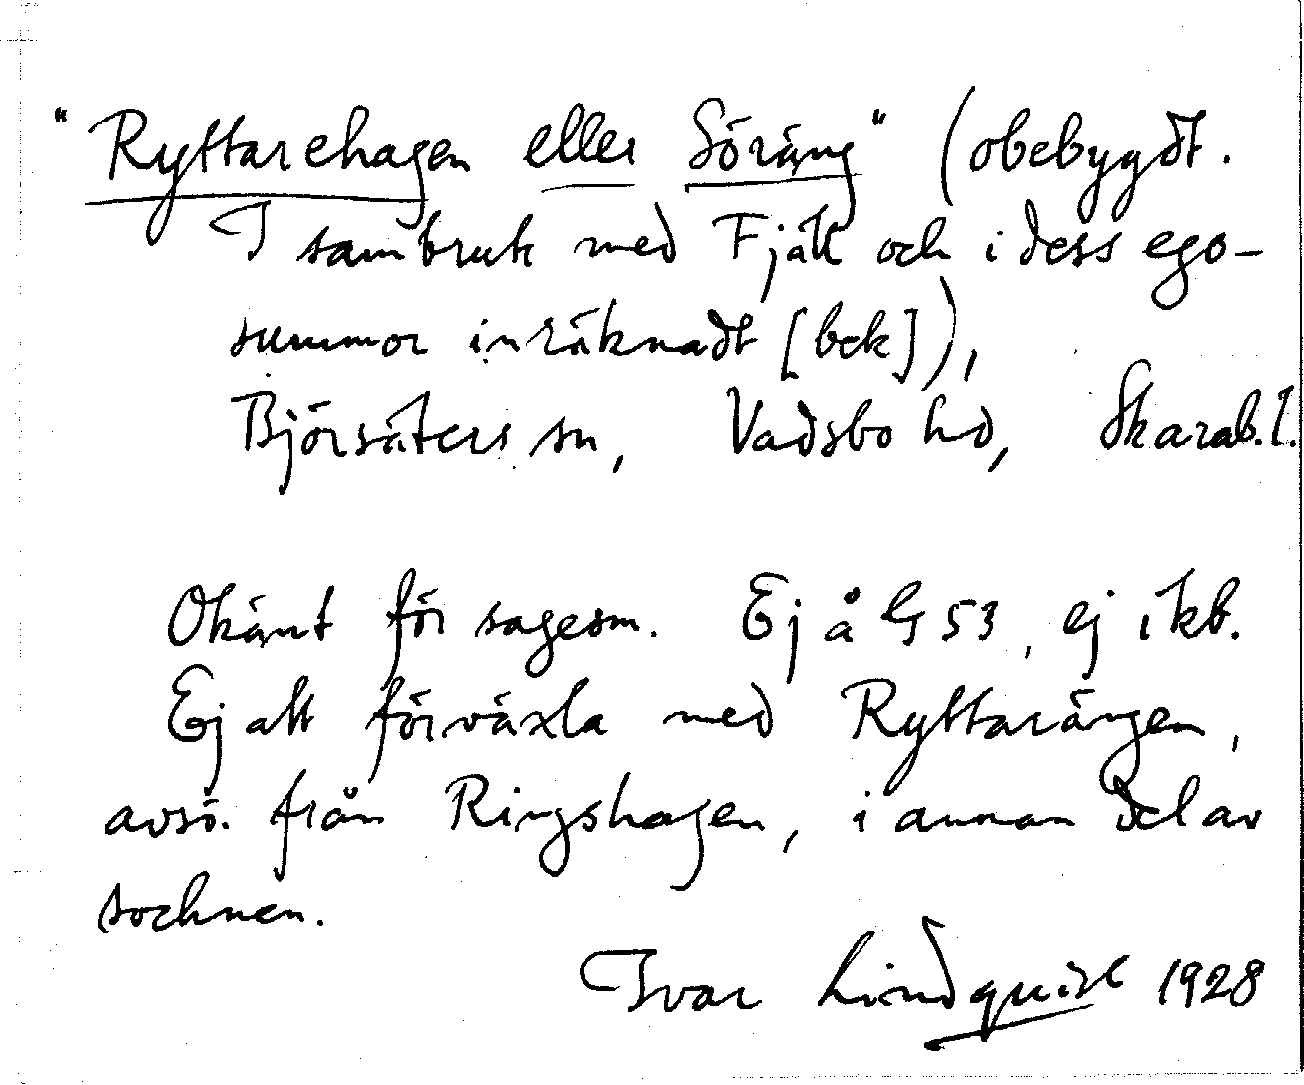 "Ryttarehagen eller Söräng" (obebygdt.
I sambruk med Fjäll och i dess ego-
summor inräknadt [bek]),
Björsäters sn, Vadsbo hd, Skarab. l.
Okänt för sagesm. Ej å G 53, ej i kb.
Ej att förväxla med Ryttarängen,
avsö. från Ringshagen, i annan del av
socknen.
Ivar Lindquist 1928